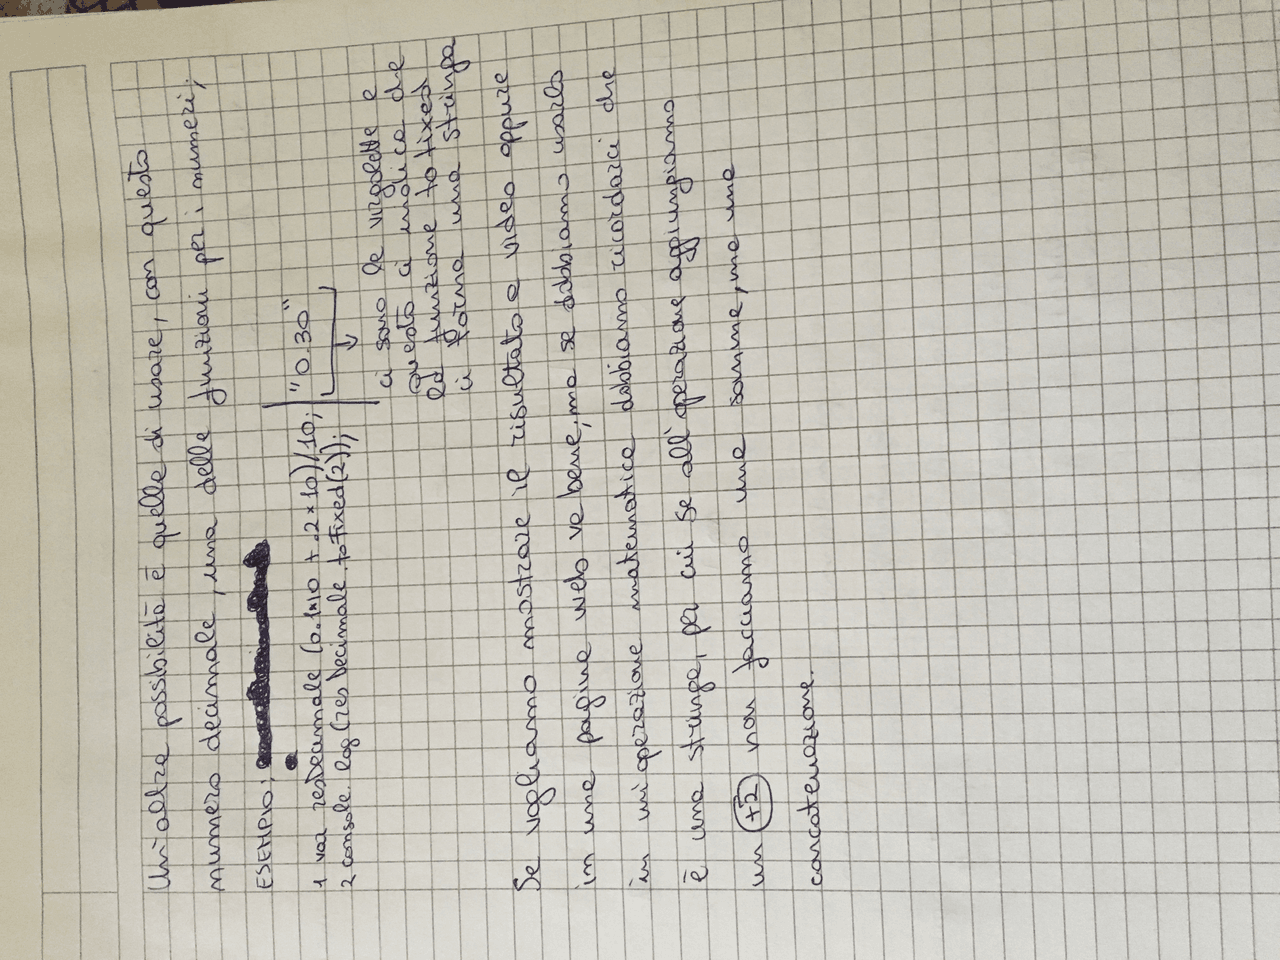 Un'altra possibilità è quella di usare, con questo
numero decimale, una delle funzioni per i numeri;
ESEMPIO:
1 var resDecimale (0.1*10 + .2*10)/10;
2 console.log(resDecimale.toFixed(2));
"0.30"
ci sono le virgolette e
questo ci indica che
la funzione toFixed
ci torna una stringa
Se vogliamo mostrare il risultato a video oppure
in una pagina web va bene, ma se dobbiamo usarlo
in un'operazione matematica dobbiamo ricordarci che
è una stringa, per cui se all'operazione aggiungiamo
un +2 non facciamo una somma, ma una
concatenazione.